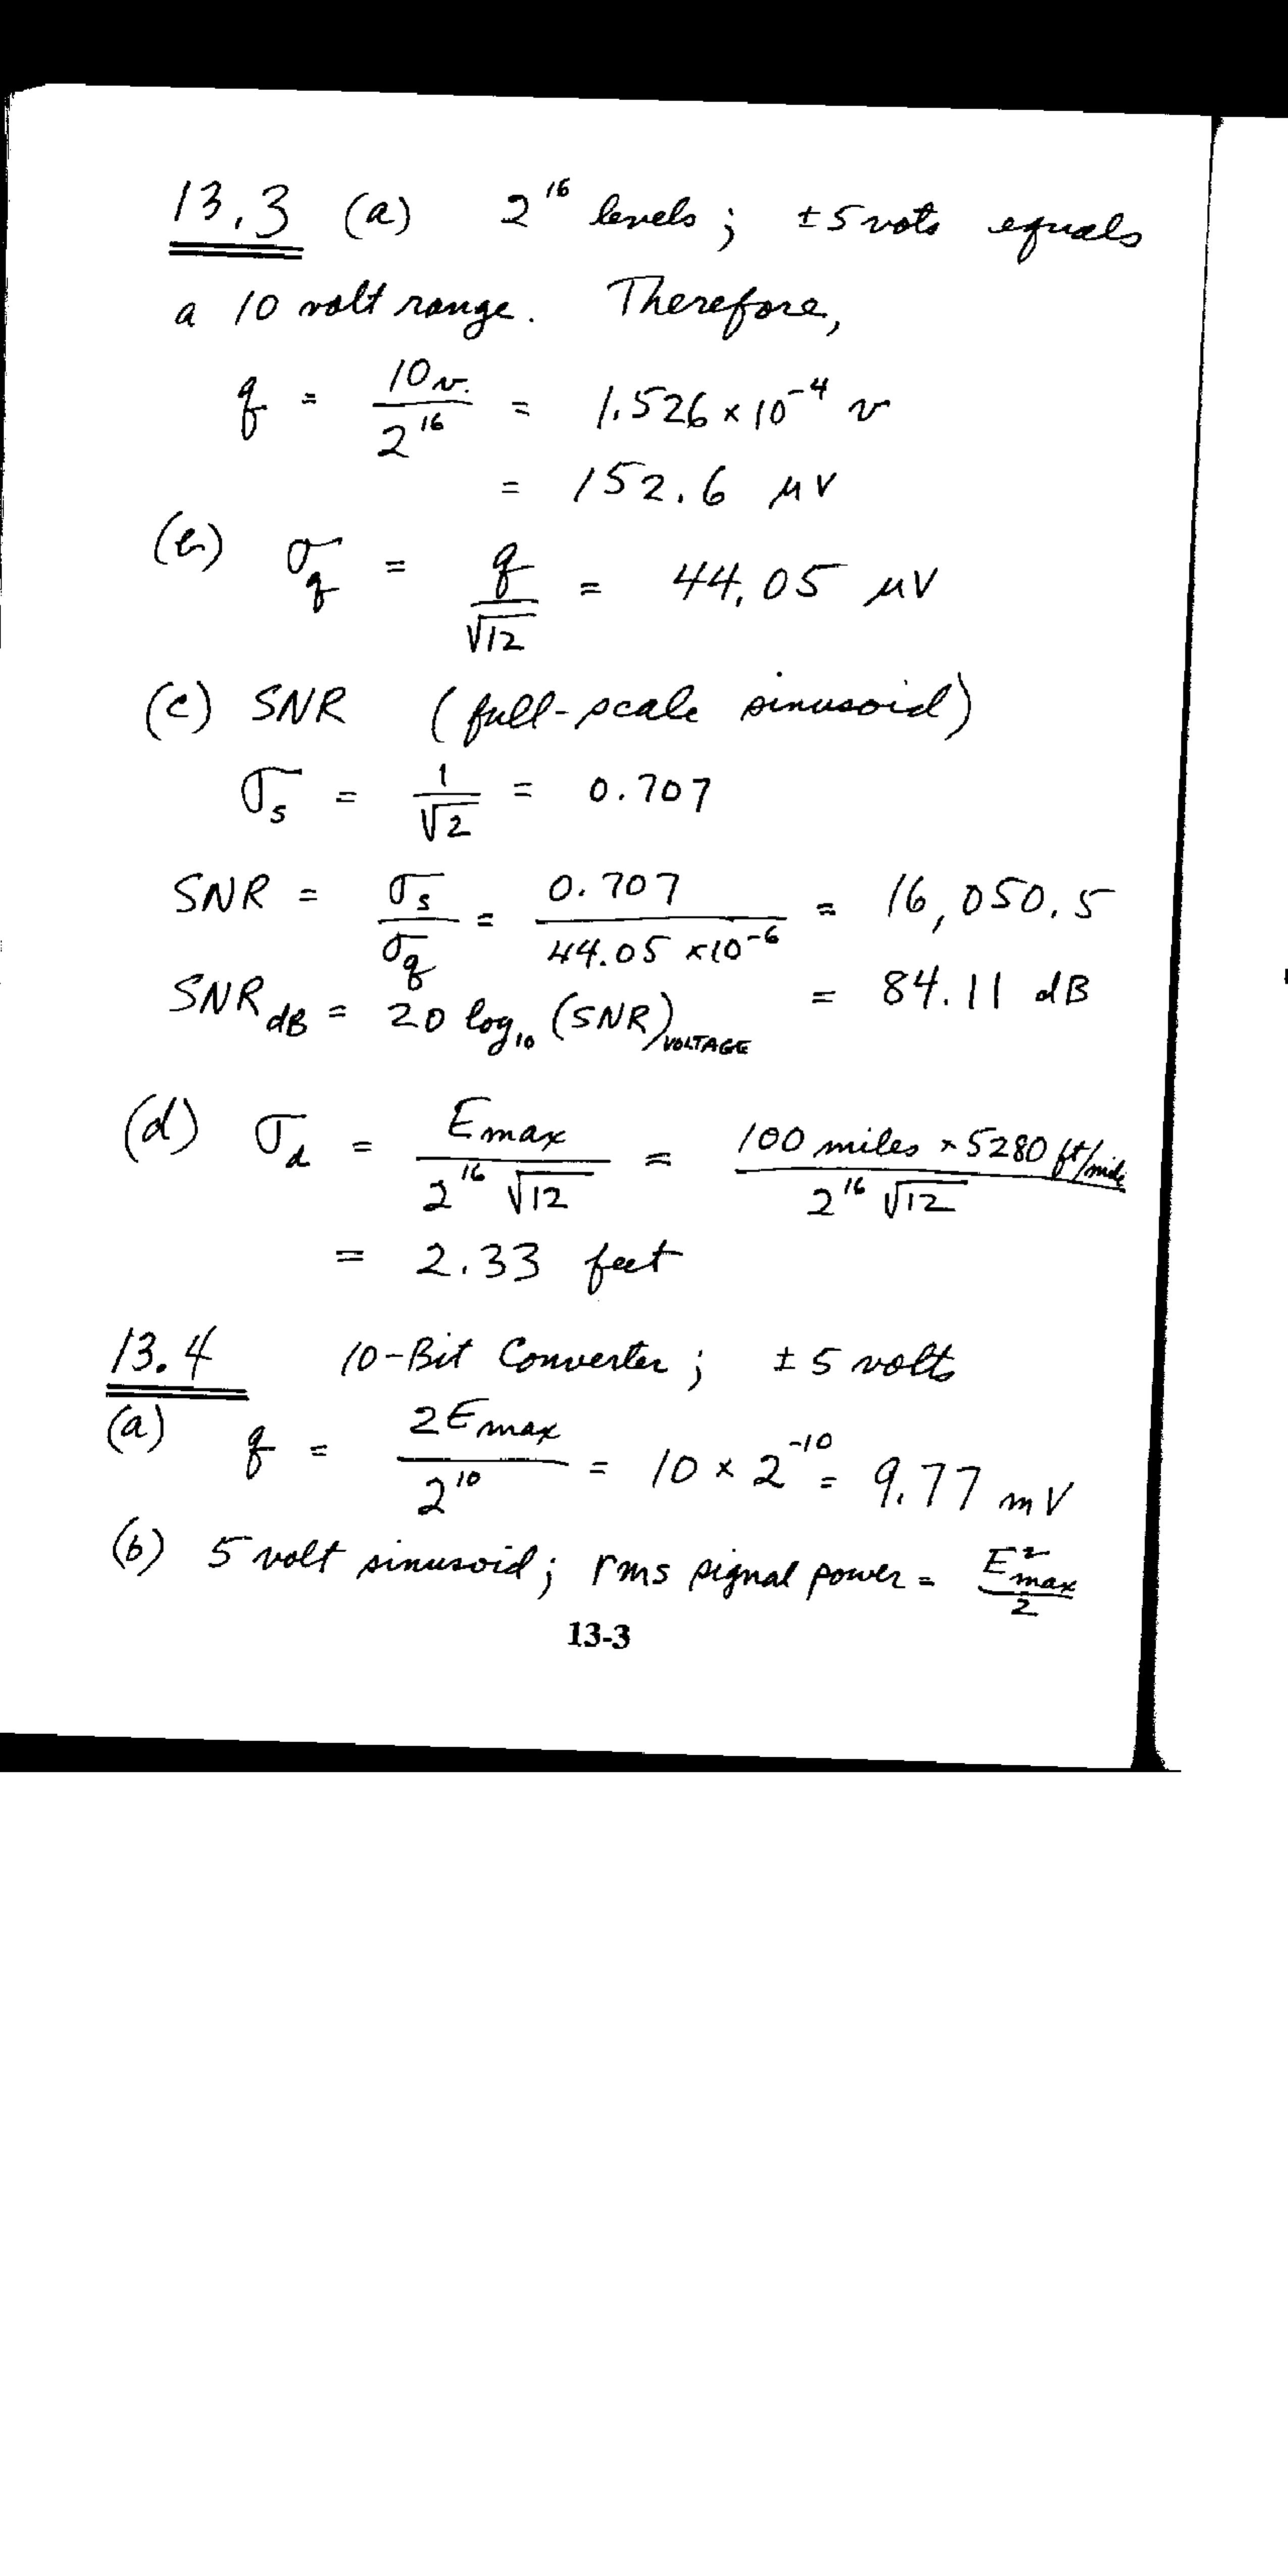 13.3 (a) 2^16 levels; ±5 vots equals
a 10 volt range. Therefore,
q = 10 v. / 2^16 = 1.526 × 10^-4 v
= 152.6 μV
(b) σ_q = q / √12 = 44.05 μV
(c) SNR (full-scale sinusoid)
σ_s = 1 / √2 = 0.707
SNR = σ_s / σ_q = 0.707 / 44.05 × 10^-6 = 16,050.5
SNR_dB = 20 log_10 (SNR)_VOLTAGE = 84.11 dB
(d) σ_d = Emax / 2^16 √12 = 100 miles × 5280 ft/mile / 2^16 √12
= 2.33 feet
13.4 10-Bit Converter; ± 5 volts
(a) q = 2Emax / 2^10 = 10 × 2^-10 = 9.77 mV
(b) 5 volt sinusoid; rms signal power = E²max / 2
13-3